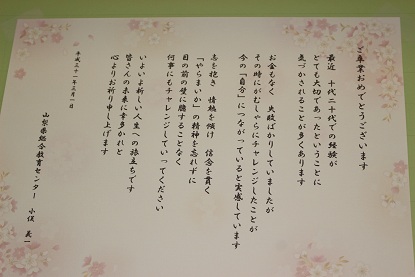 ご卒業おめでとうございます
最近　十代二十代での経験が
とても大切であったということに
気づかされることが多くあります
お金もなく　失敗ばかりしていましたが
その時にがむしゃらにチャレンジしたことが
今の「自分」につながっていると実感しています
志を抱き　情熱を傾け　信念を貫く
「やらまいか」の精神を忘れずに
目の前の壁に臆することなく
何事にもチャレンジしていってください
いよいよ新しい人生への旅立ちです
皆さんの未来に幸多かれと
心よりお祈り申し上げます
平成三十一年三月一日
山梨県総合教育センター　小俣　義一